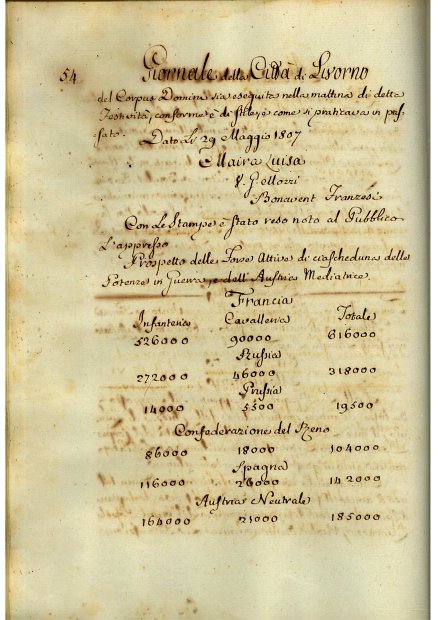 54
Giornale della Città di Livorno
del Corpus Domini sia eseguita nella mattina di detta
Festività, conforme è di stile, e come si praticava in pas-
-sato.
Dato Li 29 Maggio 1807
Maria Luisa
V. Gellozzi
Bonavent Franzesi
Con le Stampe è stato reso noto al Pubblico
L'appresso
Prospetto delle Forze Attive di ciascheduna delle
Potenze in Guerra, e dell'Austria Mediatrice
Francia
Infanteria Cavalleria Totale
526000 90000 616000
Russia
272000 46000 318000
Prussia
14000 5500 19500
Confederazione del Reno
86000 18000 104000
Spagna
116000 26000 142000
Austria Neutrale
164000 21000 185000